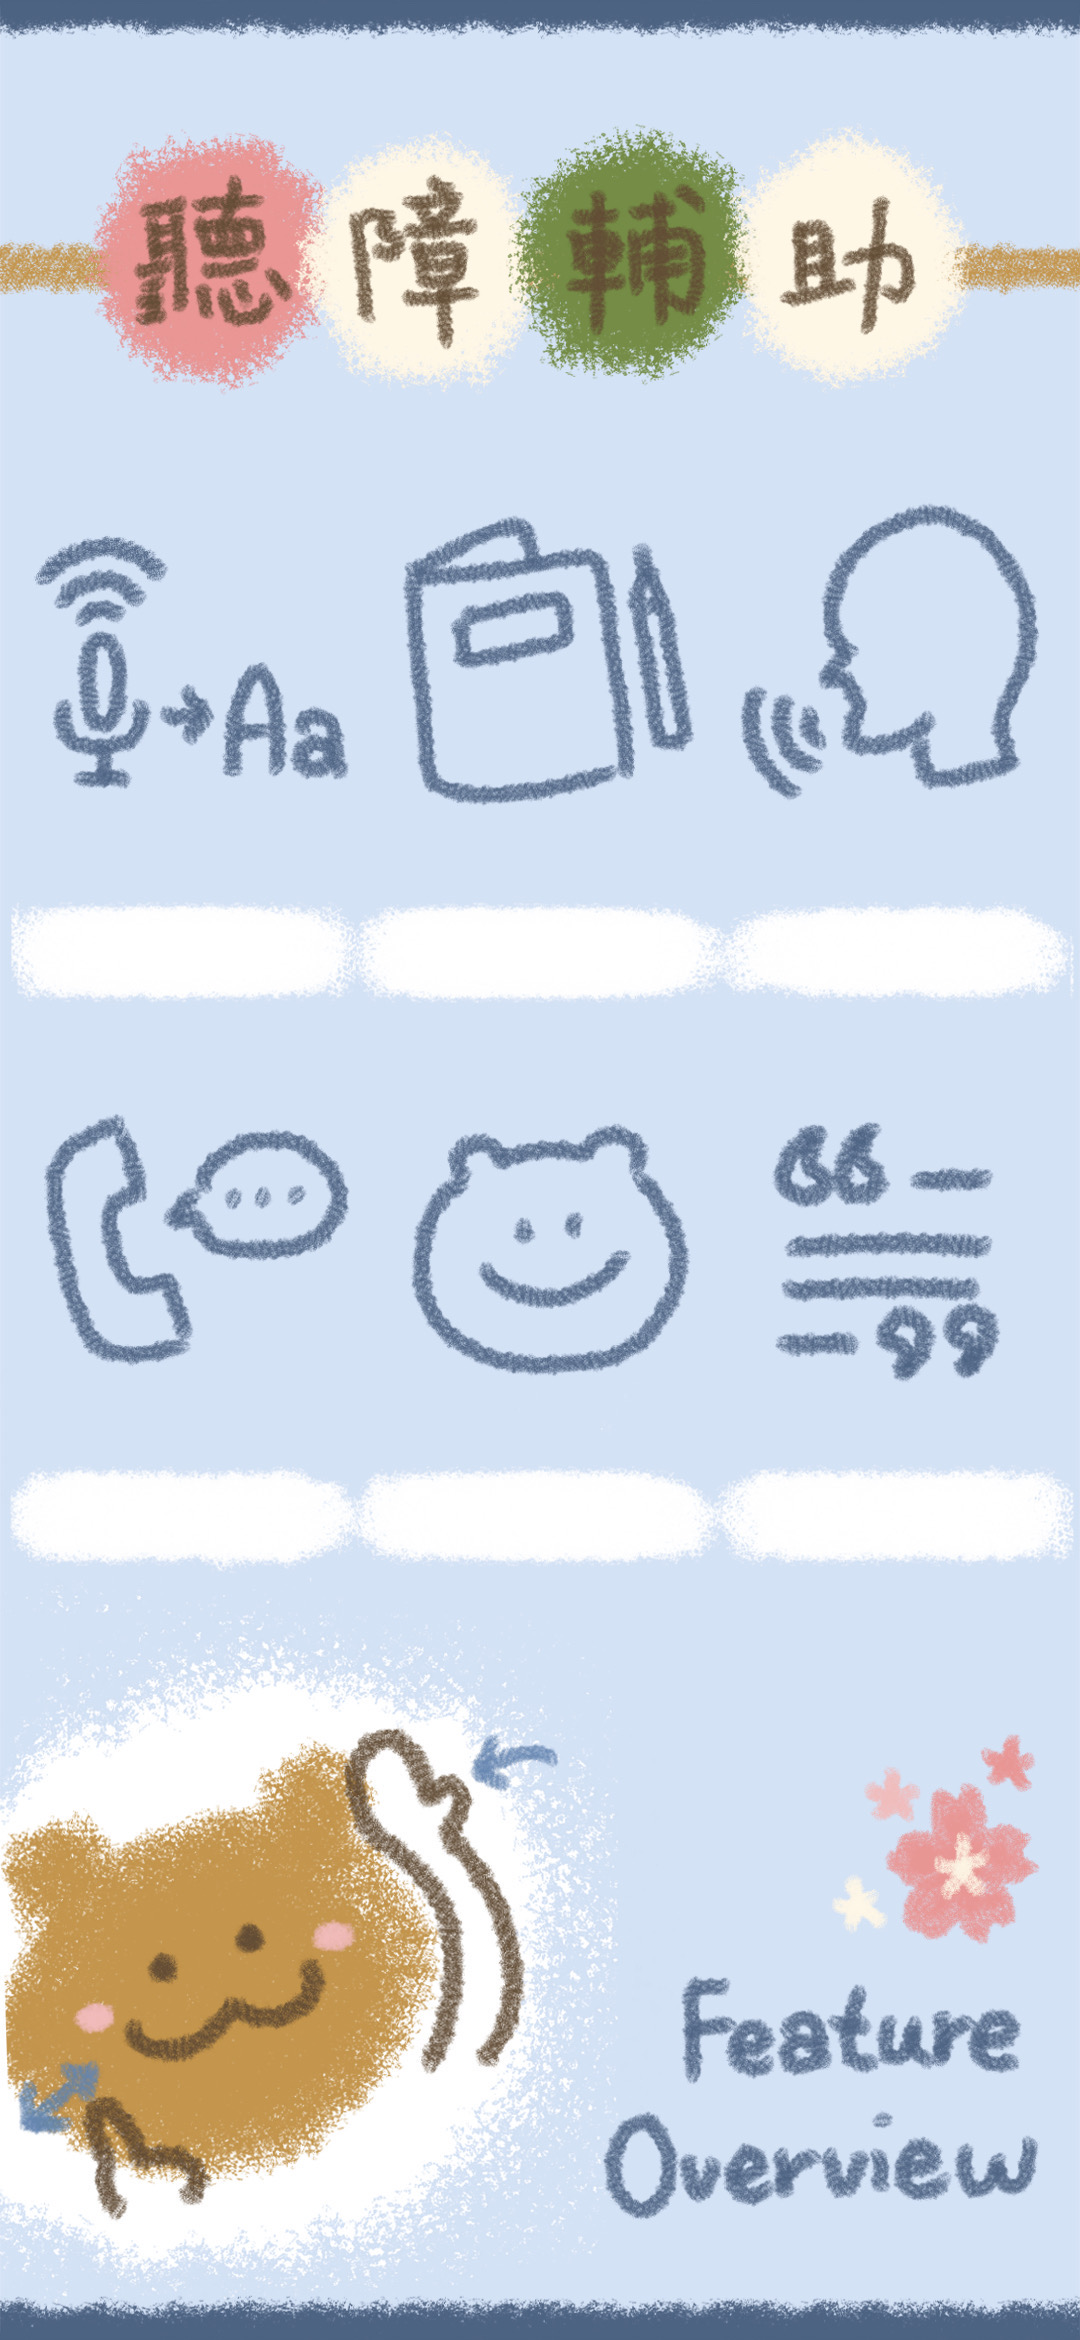 聽障輔助
Aa
Feature
Overview